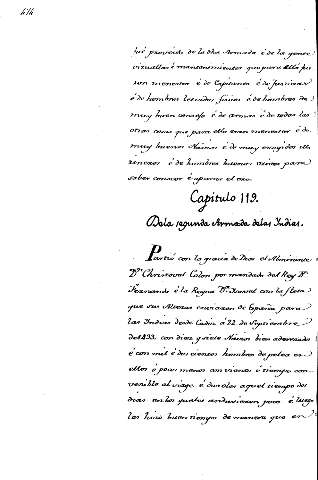 414
fué proveido de la dha Armada é de la gente
vizuallas é mantenimientos que para ella fue
son menester é de Capitanes é de personas
é de hombres letrados fisicos é de hombres de
muy buen consejo é de armas é de todas las
otras cosas que para ella eran menester é de
muy buenos Navios é de muy escogidos
é de hombres buenos para
saber conocer é apurar el oro.
Capitulo 119.
De la segunda Armada de las Indias.
Partió con la gracia de Dios el Almirante
Dn. Christoval Colon por mandado del Rey Dn.
Fernando é la Reyna Da. Isabel con la flota
que sus Altezas enviaron de España para
las Indias desde Cadiz á 22 de Septiembre
de 1493. con diez y siete Navios bien aderezados
é con mil é doscientos hombres de pelea en
ellos ó pocos menos
al viage é duroles aquel tiempo dos
dias en los quales anduvieron poco é luego
les hizo buen tiempo de manera que en